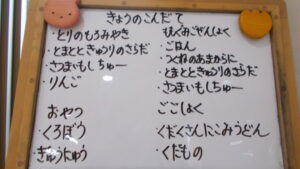 きょうのこんだて
・とりのもろみやき
・とまとときゅうりのさらだ
・さつまいもしちゅー
・りんご
おやつ
・くろぼう
・ぎゅうにゅう
もぐみごぜんしょく
・ごはん
・つくねのあまからに
・とまとときゅうりのさらだ
・さつまいもしちゅー
ごごしょく
・くだくさんにこみうどん
・くだもの